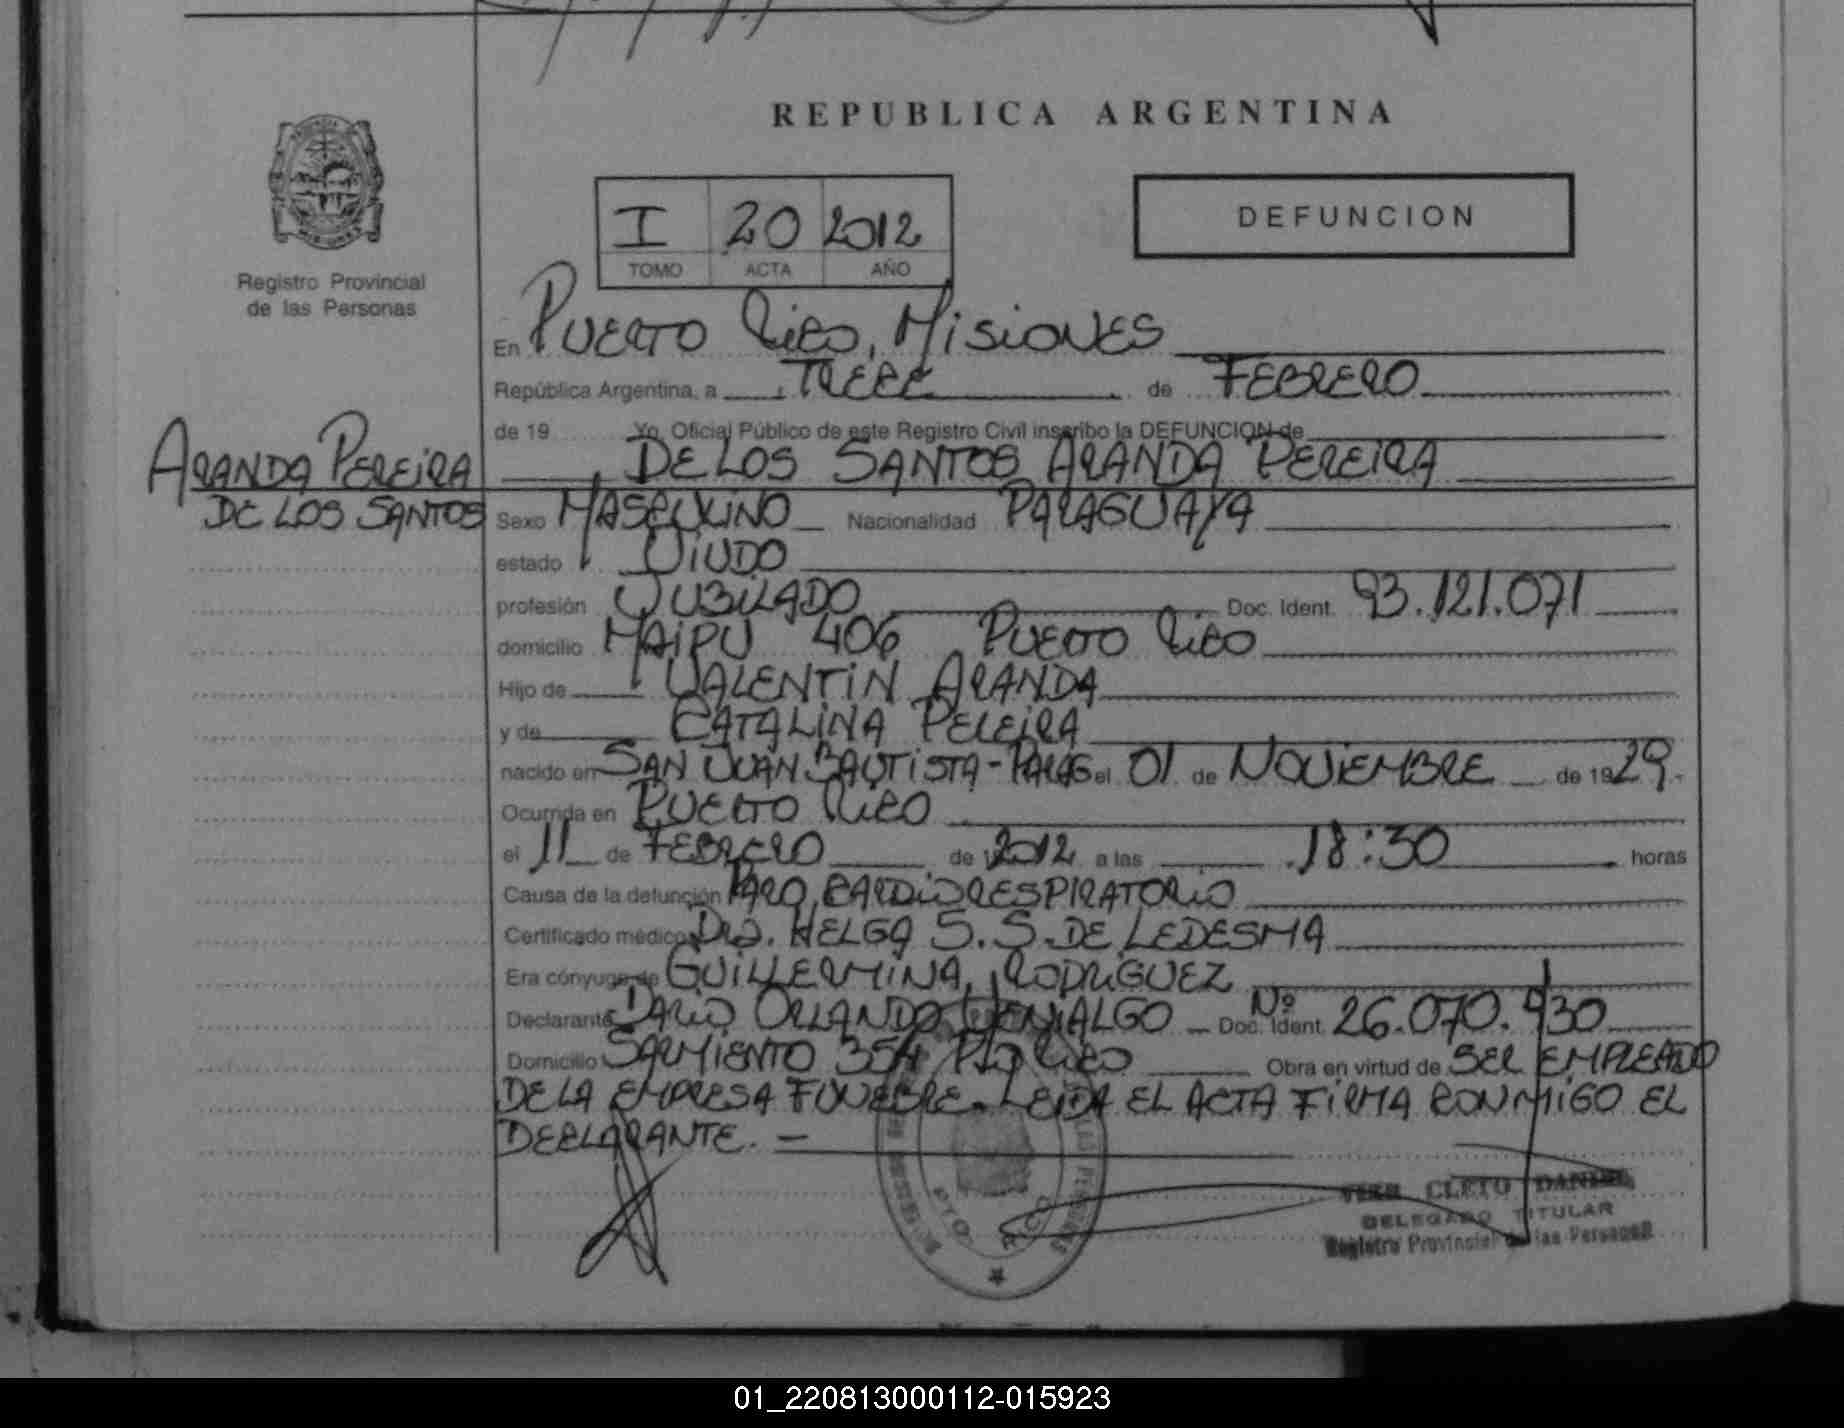 REPUBLICA ARGENTINA
I 20 2012
TOMO ACTA AÑO
DEFUNCION
Registro Provincial
de las Personas
En PUERTO RICO, MISIONES
República Argentina, a TRECE de FEBRERO
de 19 Yo, Oficial Público de este Registro Civil inscribo la DEFUNCION de
ARANDA PEREIRA
DE LOS SANTOS
DE LOS SANTOS ARANDA PEREIRA
Sexo MASCULINO Nacionalidad PARAGUAYA
estado VIUDO
profesión JUBILADO Doc. Ident. 93.121.071
domicilio MAIPU 406 PUERTO RICO
Hijo de VALENTIN ARANDA
y de CATALINA PEREIRA
nacido en SAN JUAN BAUTISTA - PARAG el 01 de NOVIEMBRE de 1929.-
Ocurrida en PUERTO RICO
el 11 de FEBRERO de 2012 a las 18:30 horas
Causa de la defunción PARO CARDIORESPIRATORIO
Certificado médico Dra. HELGA S. S. DE LEDESMA
Era cónyuge de GUILLERMINA RODRIGUEZ
Declarante DARIO ORLANDO Doc. Ident. Nº 26.070.930
Domicilio SARMIENTO 354 PTO RICO Obra en virtud de SER EMPLEADO
DE LA EMPRESA FUNEBRE. LEIDA EL ACTA FIRMA CONMIGO EL
DECLARANTE. —
PTO. RICO
CLETO DANIEL
DELEGADO TITULAR
Registro Provincial de las Personas
01_220813000112-015923